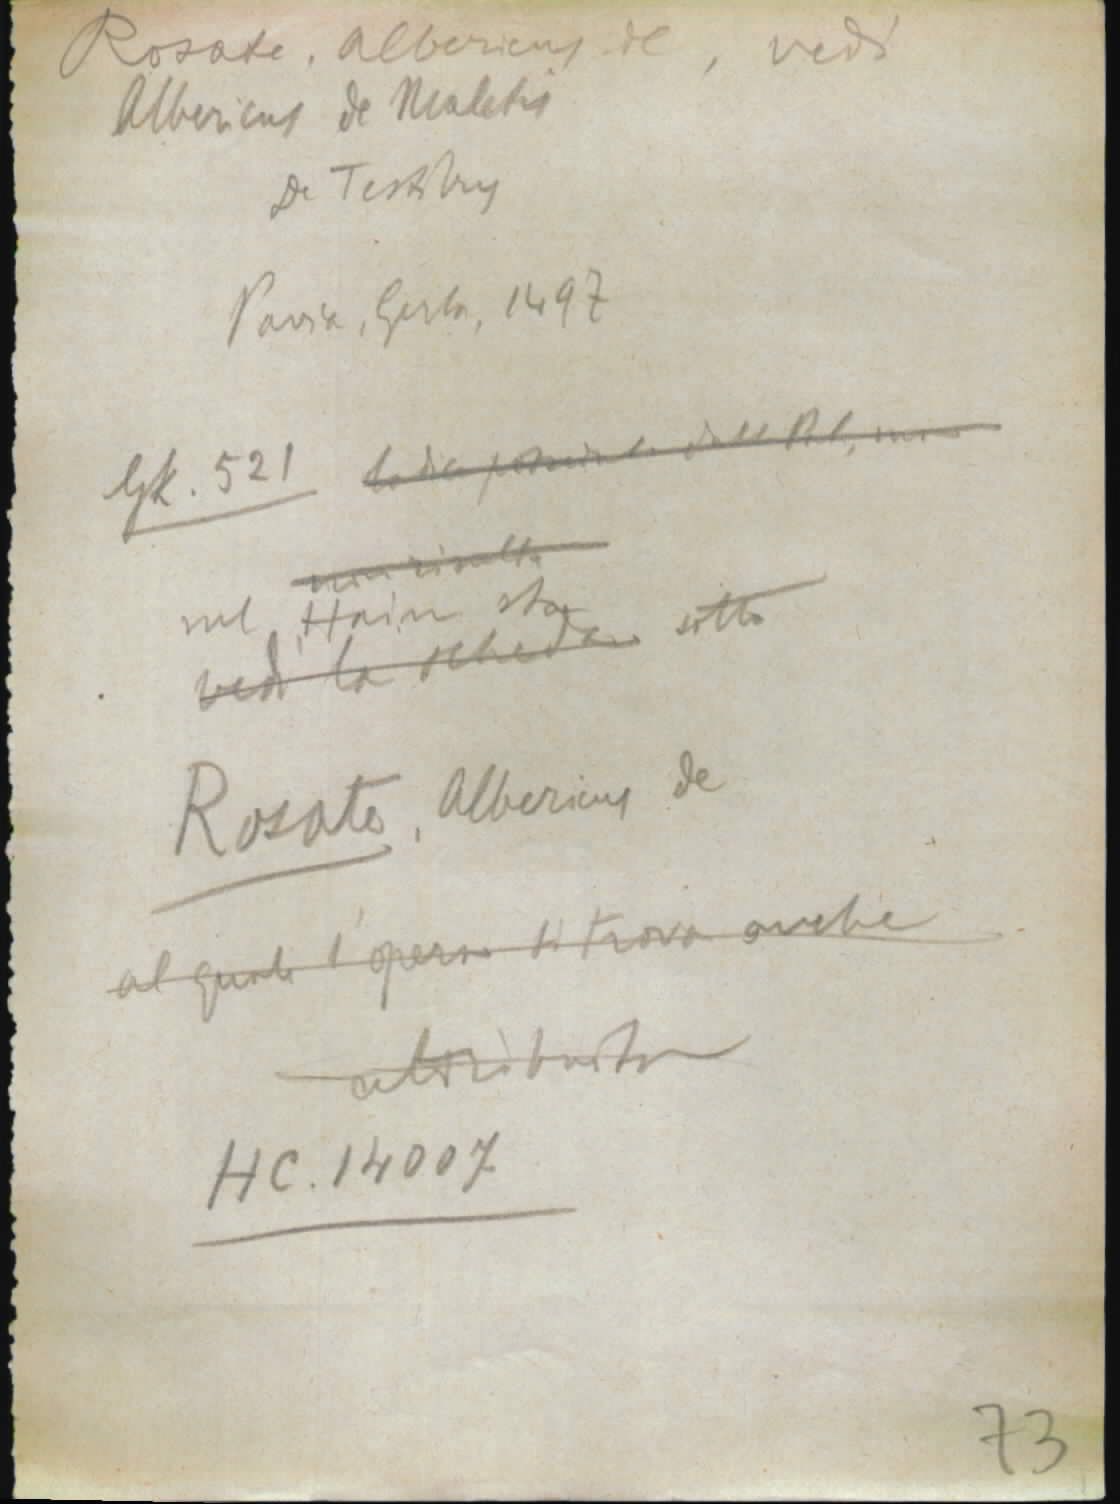 Rosate, Albericus de, vedi
Albericus de Maletis
De Testibus
Pavia, Gerla, 1497
Gk. 521
non risulta
nel Hain sta
vedi la scheda sotto
Rosate, Albericus de
al quale l'opera si trova anche
attribuita
HC. 14007
73